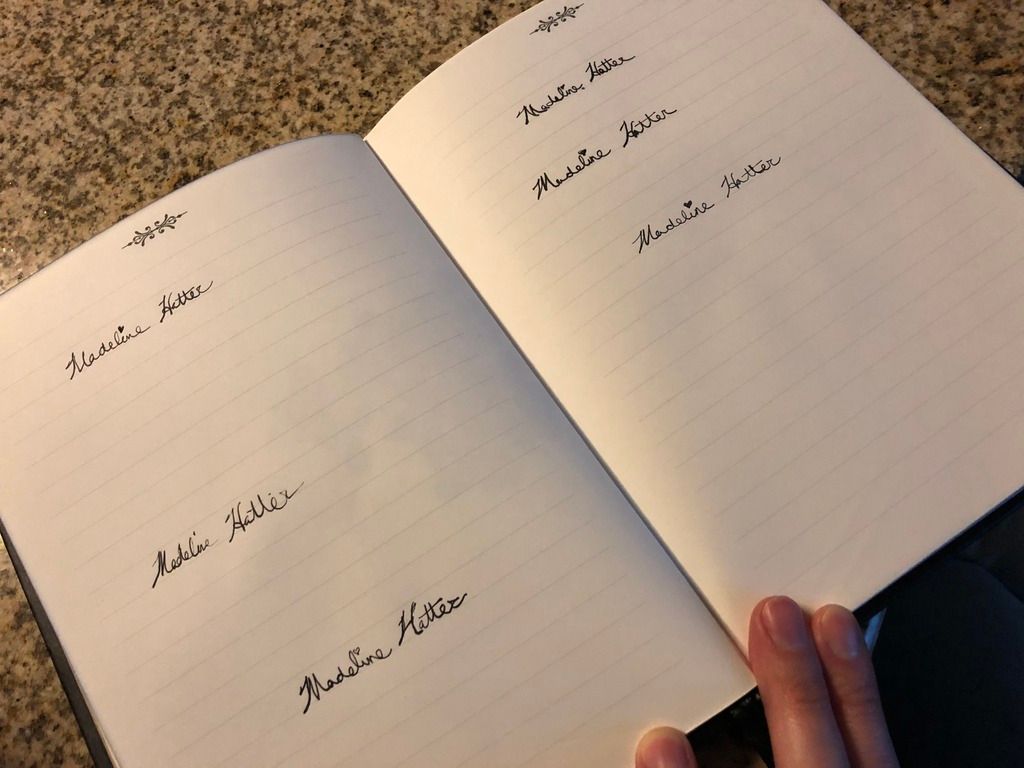 Madeline Hatter
Madeline Hatter
Madeline Hatter
Madeline Hatter
Madeline Hatter
Madeline Hatter